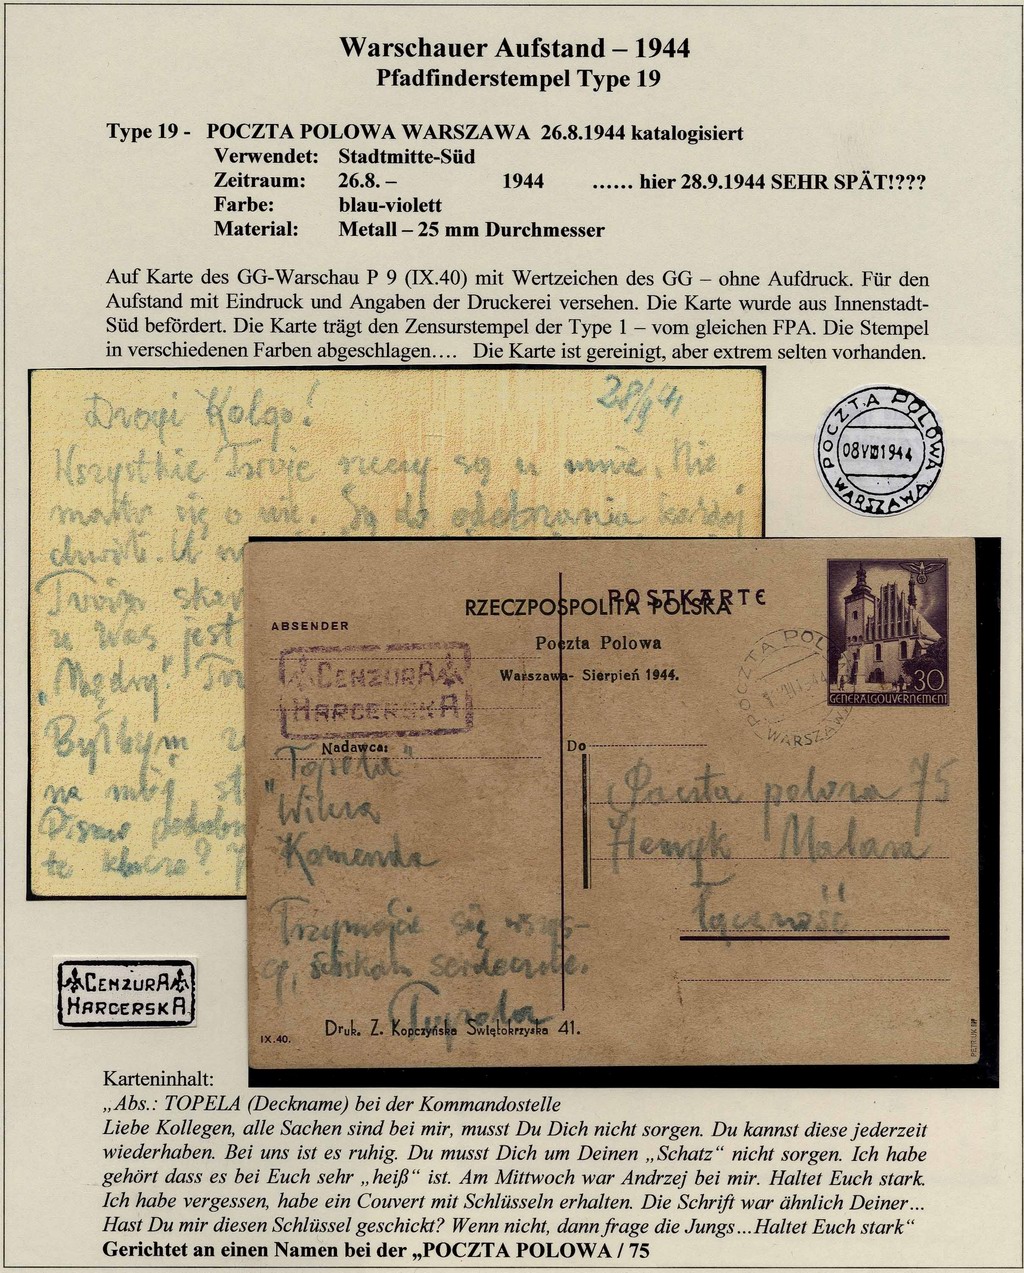 Warschauer Aufstand – 1944
Pfadfinderstempel Type 19
Type 19 - POCZTA POLOWA WARSZAWA 26.8.1944 katalogisiert
Verwendet: Stadtmitte-Süd
Zeitraum: 26.8. – 1944 ...... hier 28.9.1944 SEHR SPÄT!???
Farbe: blau-violett
Material: Metall – 25 mm Durchmesser
Auf Karte des GG-Warschau P 9 (IX.40) mit Wertzeichen des GG – ohne Aufdruck. Für den
Aufstand mit Eindruck und Angaben der Druckerei versehen. Die Karte wurde aus Innenstadt-
Süd befördert. Die Karte trägt den Zensurstempel der Type 1 – vom gleichen FPA. Die Stempel
in verschiedenen Farben abgeschlagen.... Die Karte ist gereinigt, aber extrem selten vorhanden.
Drogi Kolgo!
28/9 44
Wszystkie Twoje rzeczy są u mnie. Nie
martw się o nie. Są do odebrania każdej
chwili. U
Twoim skar
u Was jest
"Mądry".
Byłbym
na mój
Pismo podobn
te klucze?
POCZTA POLOWA
08VIII1944
WARSZAWA
POSTKARTE
RZECZPOSPOLITA POLSKA
ABSENDER
Poczta Polowa
Warszawa- Sierpień 1944.
CENZURA
HARCERSKA
POCZTA POL
WARSZAW
30
GENERALGOUVERNEMENT
Nadawca:
Do
"Topola"
Wilcza
Komenda
Poczta polowa 75
Henryk Malara
łączność
Trzymajcie się wszys-
cy, ściskam serdecznie.
Topola
IX.40.
Druk. Z. Kopczyńska Świętokrzyska 41.
CENZURA
HARCERSKA
Karteninhalt:
„Abs.: TOPELA (Deckname) bei der Kommandostelle
Liebe Kollegen, alle Sachen sind bei mir, musst Du Dich nicht sorgen. Du kannst diese jederzeit
wiederhaben. Bei uns ist es ruhig. Du musst Dich um Deinen „Schatz“ nicht sorgen. Ich habe
gehört dass es bei Euch sehr „heiß“ ist. Am Mittwoch war Andrzej bei mir. Haltet Euch stark.
Ich habe vergessen, habe ein Couvert mit Schlüsseln erhalten. Die Schrift war ähnlich Deiner...
Hast Du mir diesen Schlüssel geschickt? Wenn nicht, dann frage die Jungs...Haltet Euch stark“
Gerichtet an einen Namen bei der „POCZTA POLOWA / 75